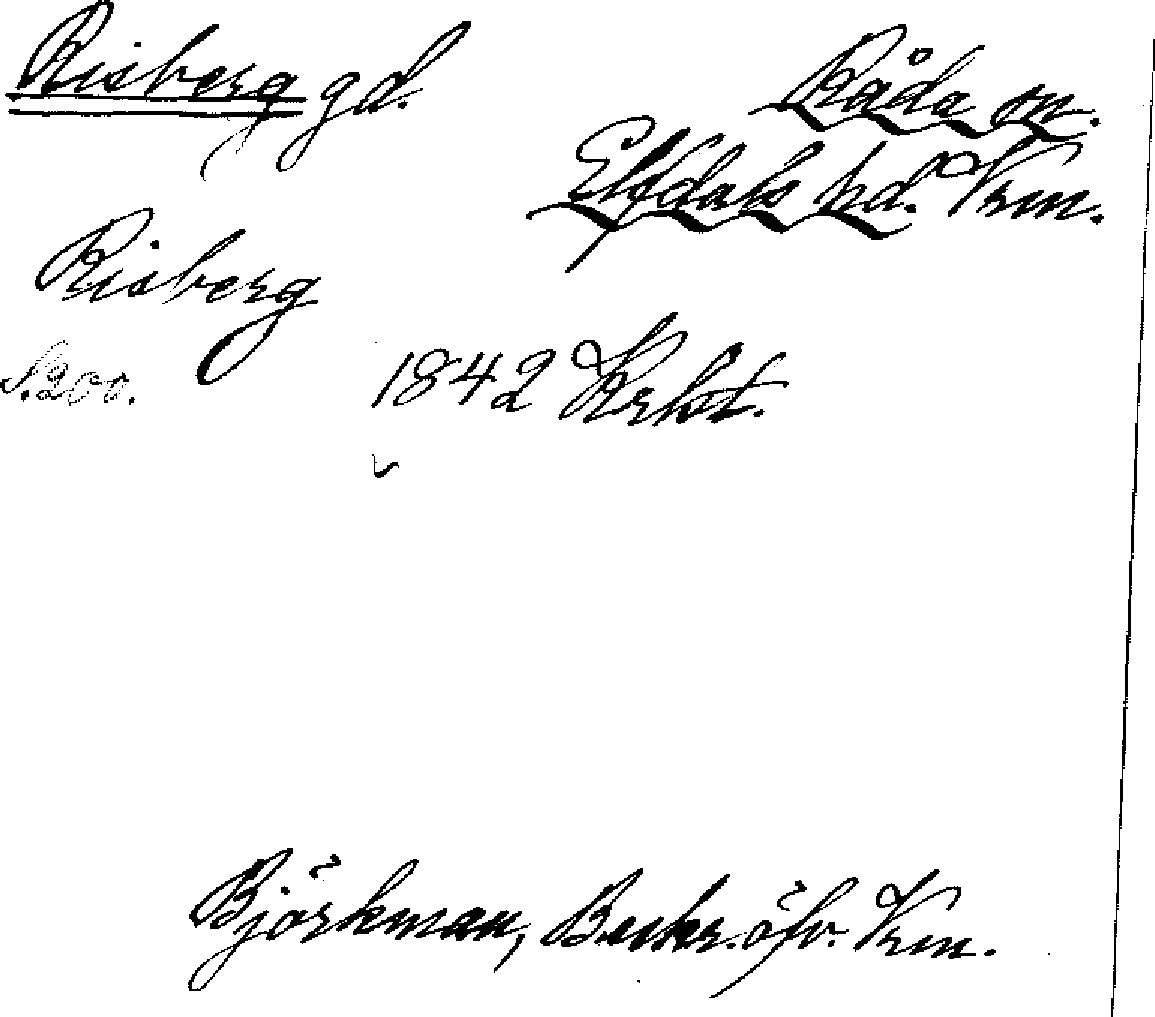 Risberg gd.
Råda sn.
Elfdals hd. Vrm.
Risberg
S. 200.
1842 Krht.
Björkman, Beskr. öfv. Vrm.